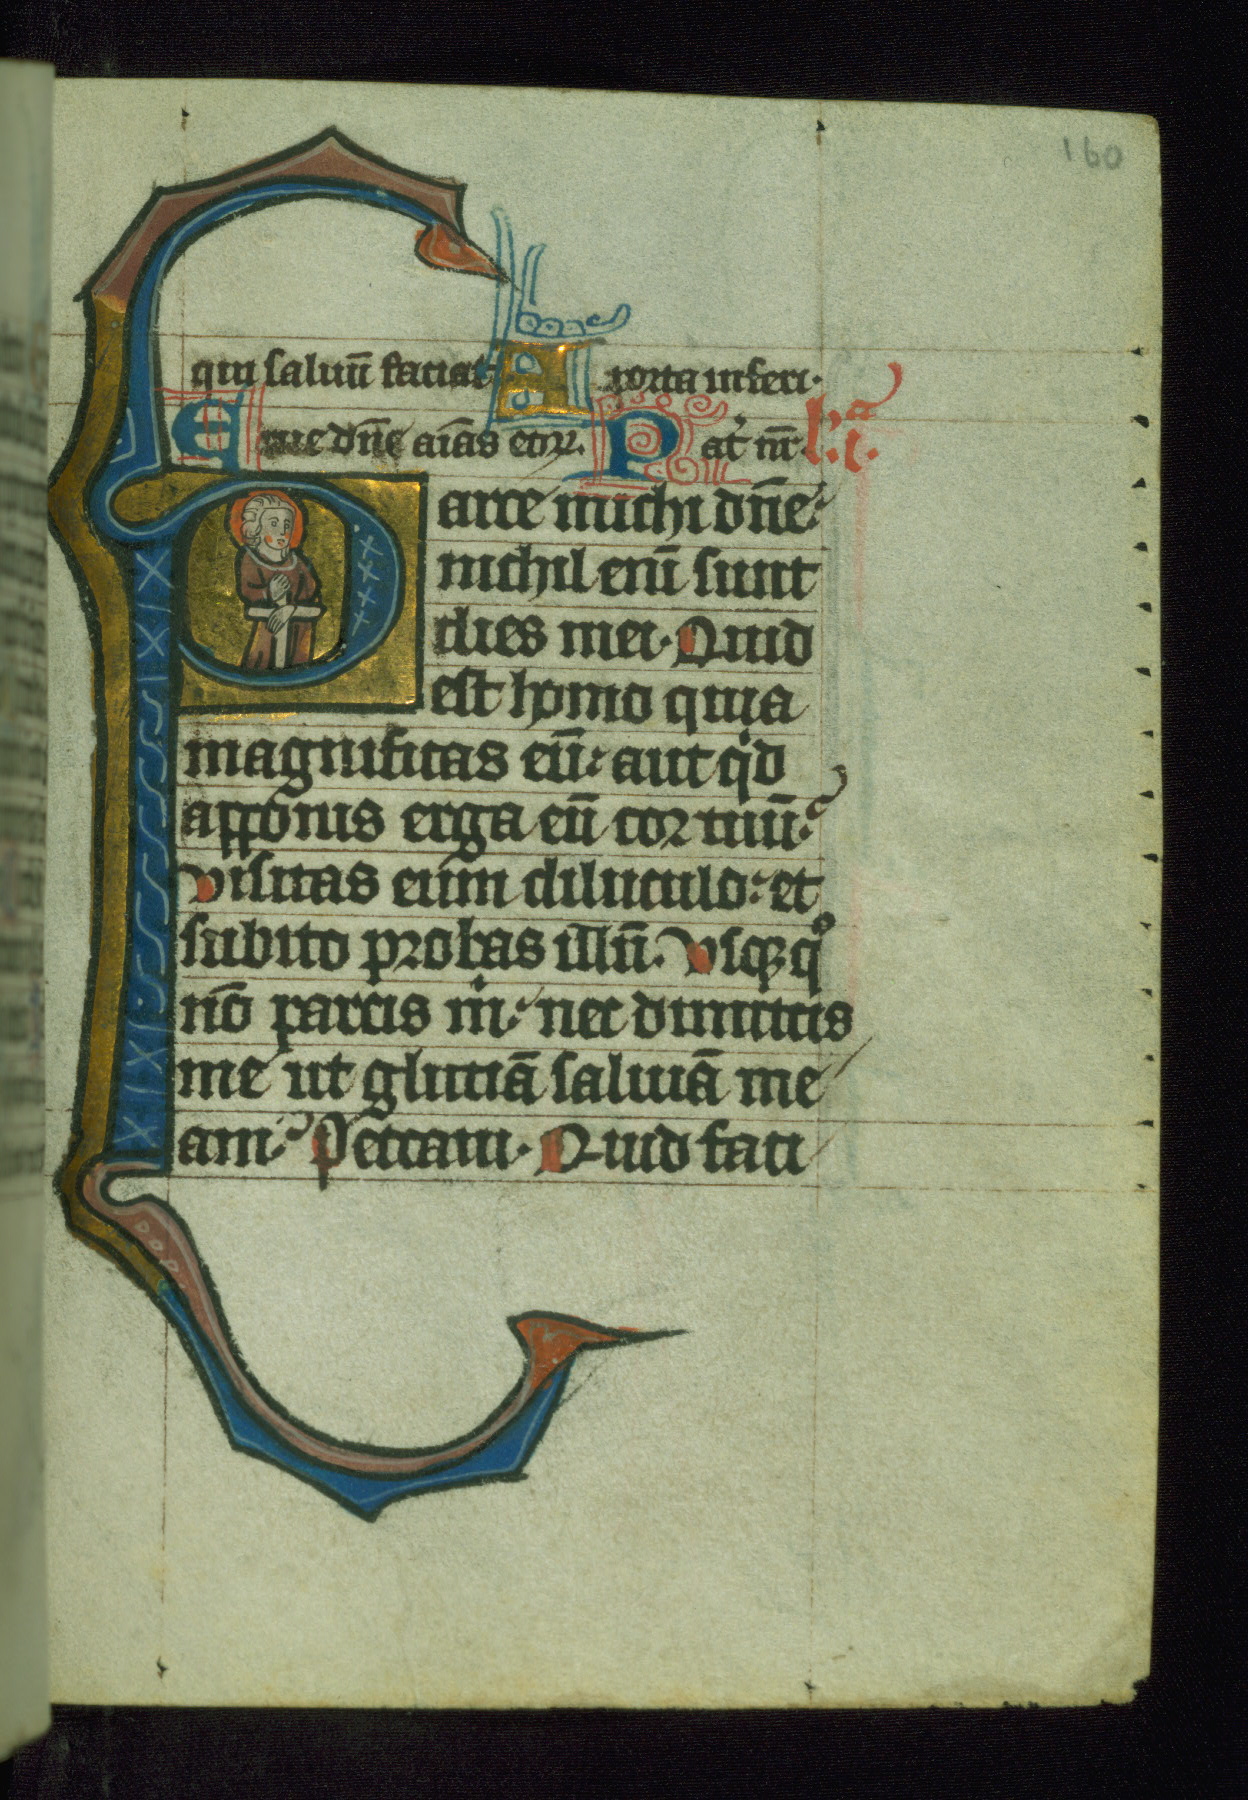 160
qui saluū faciat A porta inferi.
Erue dñe aīas eoꝝ. Pat̉ nr̄. l̉c̄. i.
Parce michi dñe:
nichil enī sunt
dies mei. Quid
est homo quia
magnificas eū: aut qͥd
apponis erga eū cor tuū:
visitas eum diluculo: et
subito probas illū. Vsqꝫ qͦ
nō parcis mͥ: nec dimittis
me ut glutiā saliuā me
am: Peccaui. Quid faci